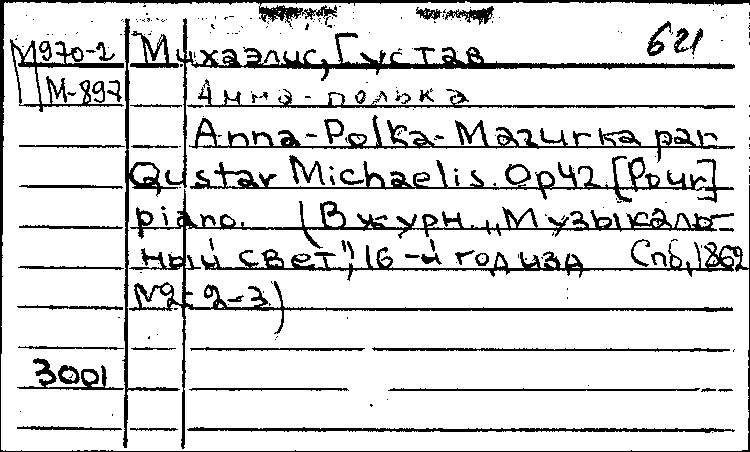 621
М970-2 Михаэлис, Густав
М-897 Анна-полька
Anna-Polka-Mazurka par
Qustav Michaelis. Op42. [Pour]
piano. (В журн. „Музыкаль-
ный свет", 16-й год изд Спб, 1862
№2-3)
3001